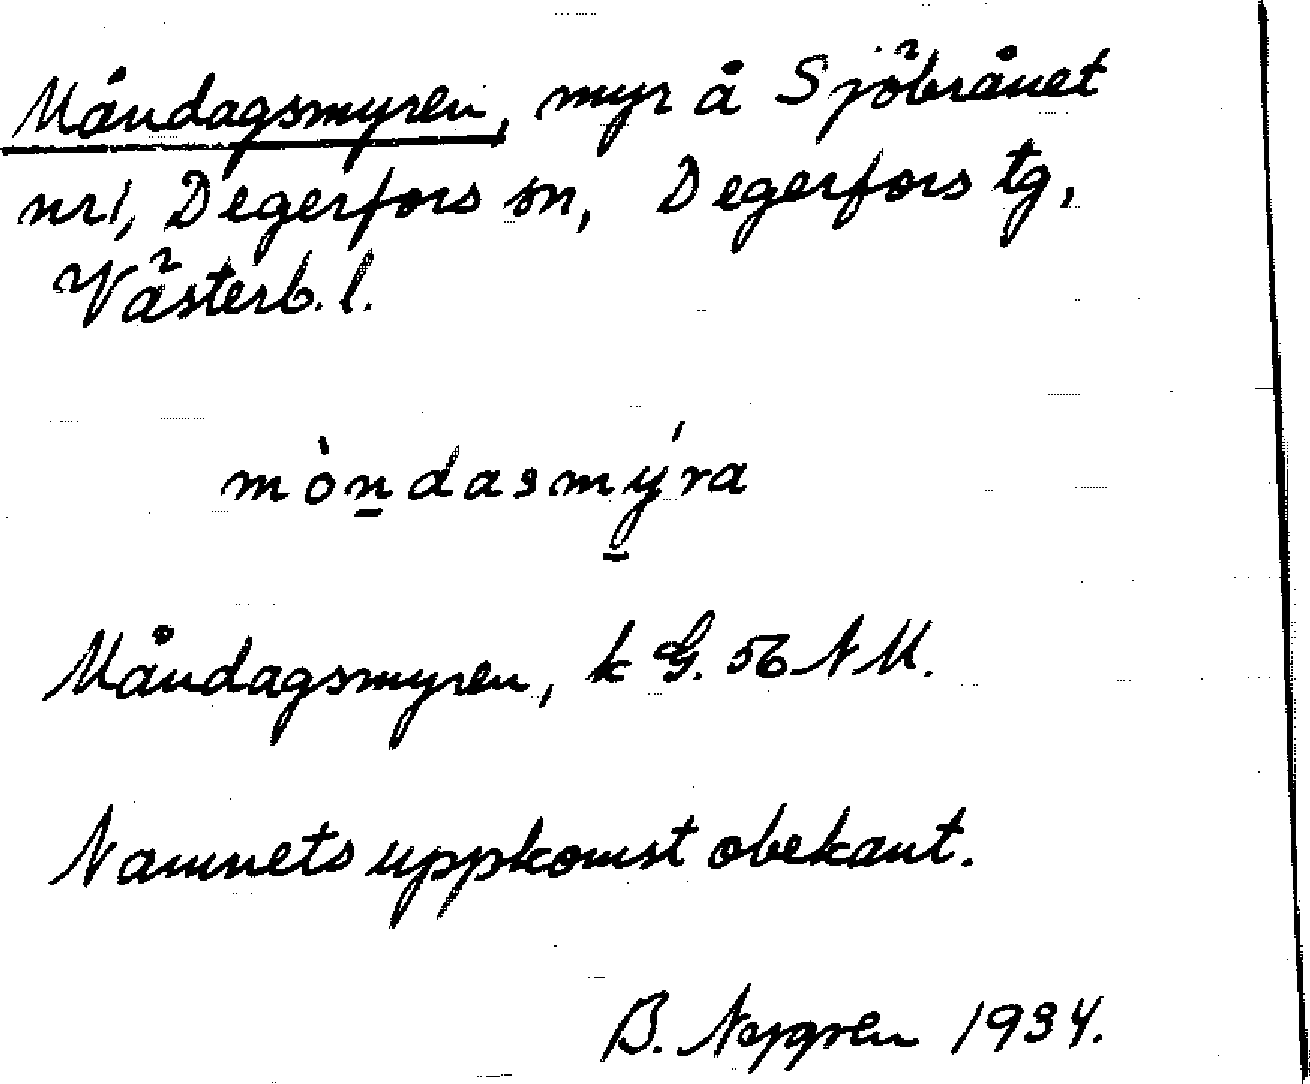 Måndagsmyren, myr å Sjöbrånet
nr 1, Degerfors sn, Degerfors tg,
Västerb. l.
mòndasmýra
Måndagsmyren, k G. 56 NM.
Namnets uppkomst obekant.
B. Nygren 1934.